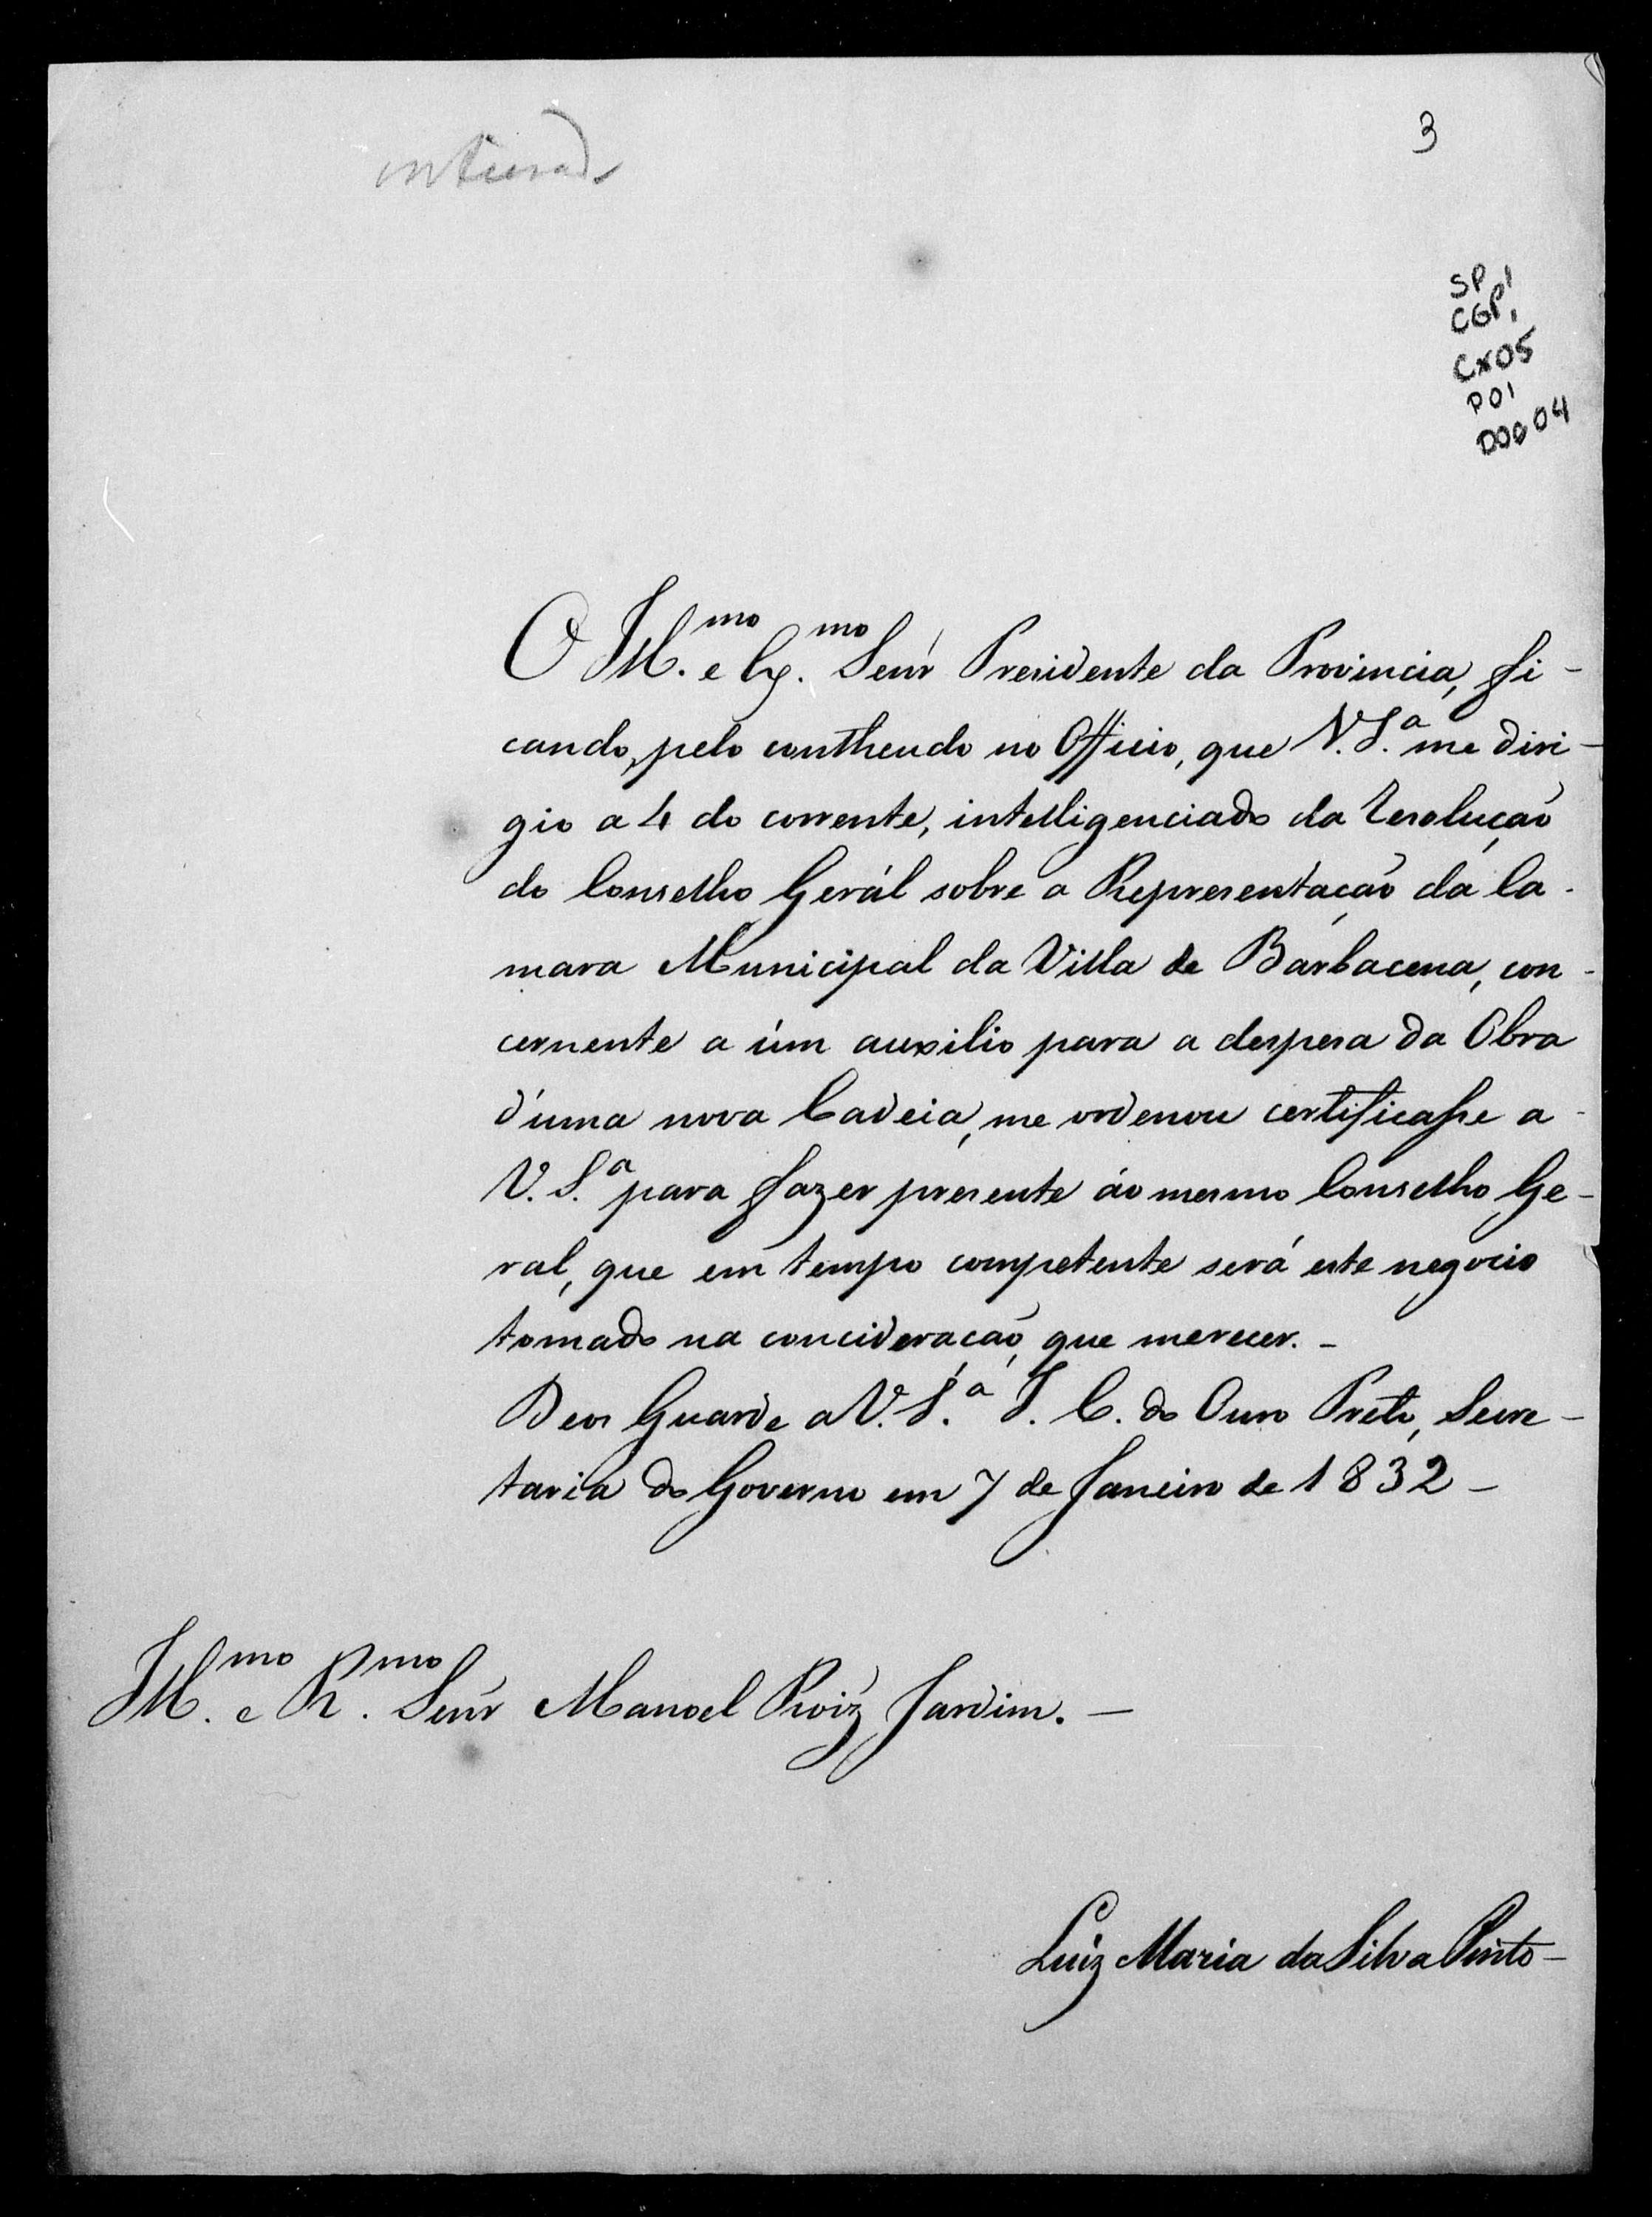 inteirado
3
SP
CGP1
CX05
P01
D0004
O Ill.mo e Ex.mo Senr Presidente da Provincia, fi-
cando, pelo contheudo no Officio, que V. S.ª me diri-
gio a 4 do corrente, intelligenciado da Resolução
do Conselho Gerál sobre a Representação da Ca-
mara Municipal da Villa de Barbacena, con-
cernente a úm auxilio para a despesa da Obra
d'uma nova Cadeia, me ordenou certificasse a
V. S.ª para fazer presente áo mesmo Conselho Ge-
ral, que em tempo competente será este negocio
tomado na concideração, que merecer. -
Deos Guarde a V. S.ª I. C. do Ouro Preto, Secre-
taria do Governo em 7 de Janeiro de 1832 -
Ill.mo e R.mo Senr Manoel Roiz Jardim. -
Luiz Maria da Silva Pinto -